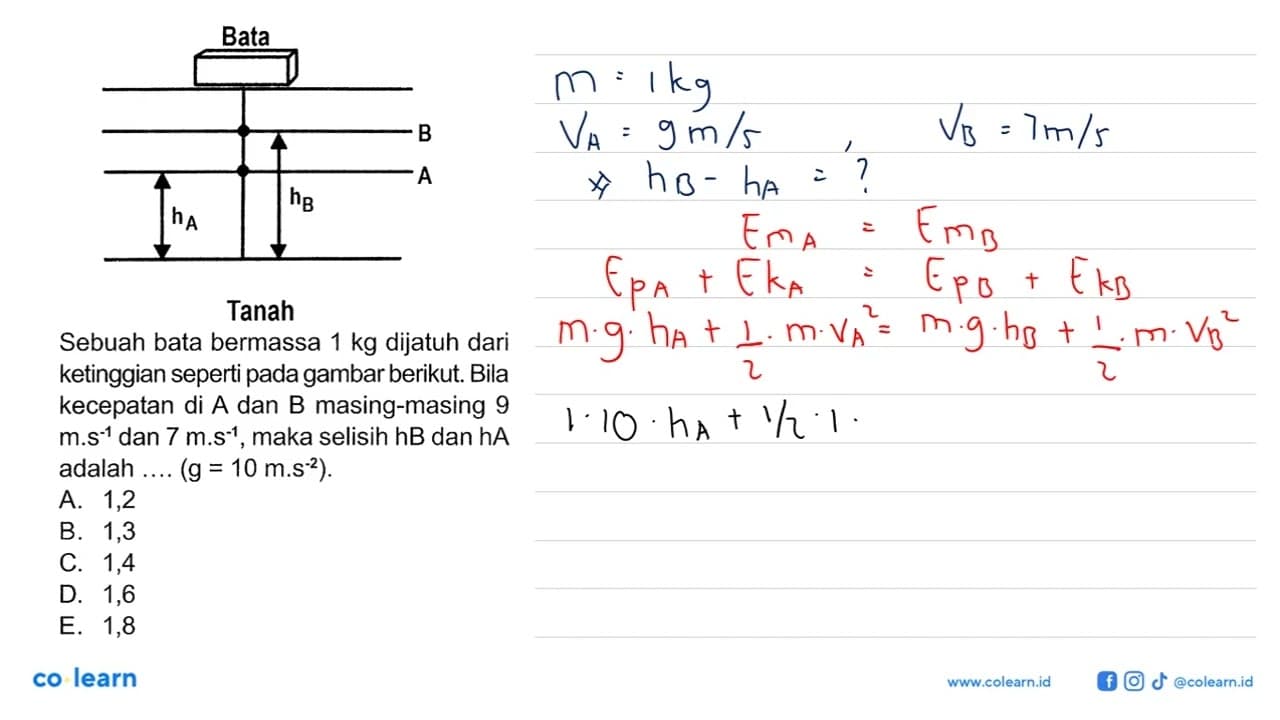 Bata
B
A
hA
hB
Tanah
Sebuah bata bermassa 1 kg dijatuh dari
ketinggian seperti pada gambar berikut. Bila
kecepatan di A dan B masing-masing 9
m.s⁻¹ dan 7 m.s⁻¹, maka selisih hB dan hA
adalah .... (g = 10 m.s⁻²).
A. 1,2
B. 1,3
C. 1,4
D. 1,6
E. 1,8
m = 1 kg
VA = 9 m/s , VB = 7 m/s
* hB - hA = ?
EmA = EmB
EpA + EkA = EpB + EkB
m.g.hA + 1/2.m.VA² = m.g.hB + 1/2.m.VB²
1.10.hA + 1/2.1.
co learn
www.colearn.id
@colearn.id